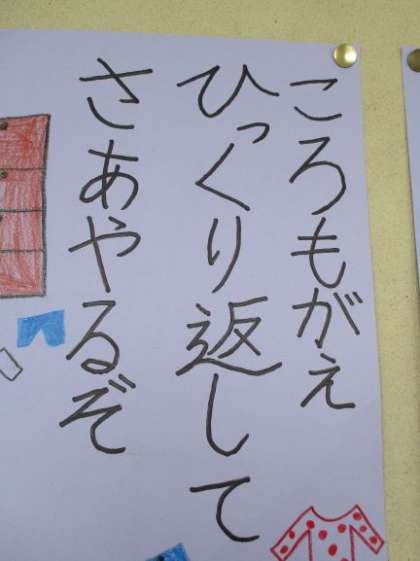 ころもがえ
ひっくり返して
さあやるぞ